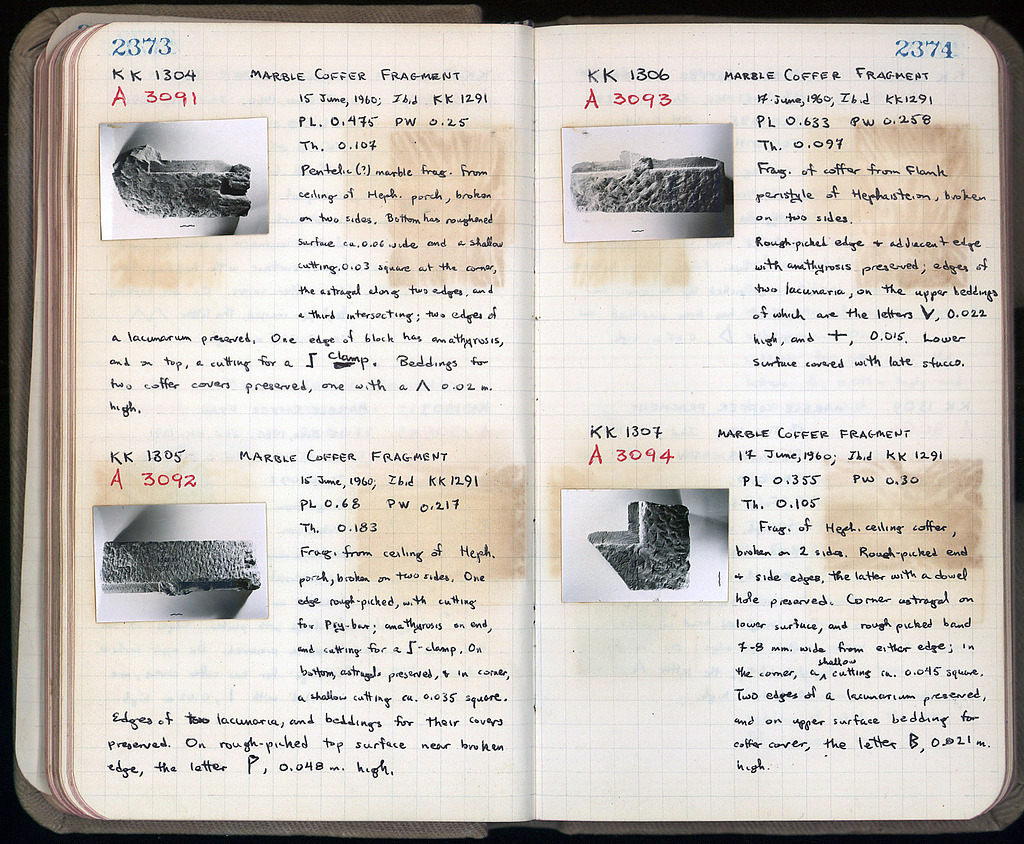 2373
KK 1304 MARBLE COFFER FRAGMENT
A 3091 15 June, 1960; Ibid KK 1291
PL. 0.475 PW 0.25
Th. 0.107
Pentelic (?) marble frag. from
ceiling of Heph. porch, broken
on two sides. Bottom has roughened
surface ca. 0.06 wide and a shallow
cutting, 0.03 square at the corner,
the astragal along two edges, and
a third intersecting; two edges of
a lacunarium preserved. One edge of block has anathyrosis,
and on top, a cutting for a ʃ clamp. Beddings for
two coffer covers preserved, one with a Λ 0.02 m.
high.
KK 1305 MARBLE COFFER FRAGMENT
A 3092 15 June, 1960; Ibid KK 1291
PL 0.68 PW 0.217
Th. 0.183
Frag. from ceiling of Heph.
porch, broken on two sides. One
edge rough-picked, with cutting
for Pry-bar; anathyrosis on end,
and cutting for a ʃ-clamp. On
bottom, astragals preserved, & in corner,
a shallow cutting ca. 0.035 square.
Edges of two lacunaria, and beddings for their covers
preserved. On rough-picked top surface near broken
edge, the letter P, 0.048 m. high.
2374
KK 1306 MARBLE COFFER FRAGMENT
A 3093 17 June, 1960; Ibid KK 1291
PL 0.633 PW 0.258
Th. 0.097
Frag. of coffer from Flank
peristyle of Hephaisteion, broken
on two sides.
Rough-picked edge & adjacent edge
with anathyrosis preserved; edges of
two lacunaria, on the upper beddings
of which are the letters V, 0.022
high, and +, 0.015. Lower
surface covered with late stucco.
KK 1307 MARBLE COFFER FRAGMENT
A 3094 17 June, 1960; Ibid KK 1291
PL 0.355 PW 0.30
Th. 0.105
Frag. of Heph. ceiling coffer,
broken on 2 sides. Rough-picked end
& side edges, the latter with a dowel
hole preserved. Corner astragal on
lower surface, and rough picked band
7-8 mm. wide from either edge; in
the corner, a shallow cutting ca. 0.045 square.
Two edges of a lacunarium preserved,
and on upper surface bedding for
coffer cover, the letter B, 0.021 m.
high.